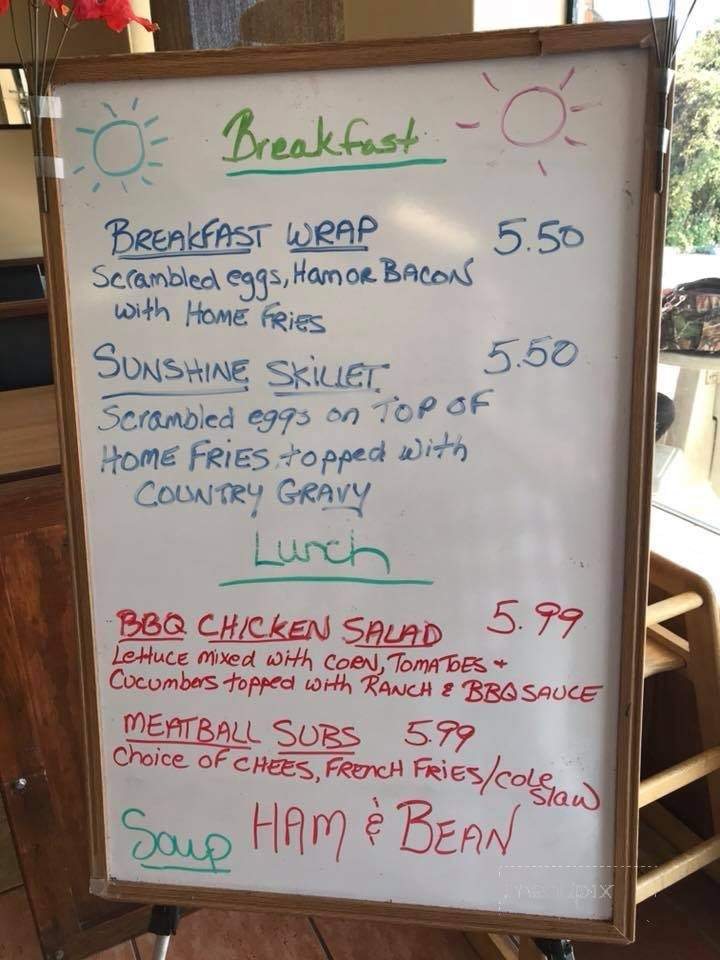 Breakfast
BREAKFAST WRAP 5.50
Scrambled eggs, HAM OR BACON
with HOME FRIES
SUNSHINE SKILLET 5.50
Scrambled eggs on TOP OF
HOME FRIES, topped with
COUNTRY GRAVY
Lunch
BBQ CHICKEN SALAD 5.99
Lettuce mixed with CORN, TOMATOES +
Cucumbers topped with RANCH & BBQ SAUCE
MEATBALL SUBS 5.99
Choice OF CHEES, FRENCH FRIES/COLE
Slaw
Soup HAM & BEAN